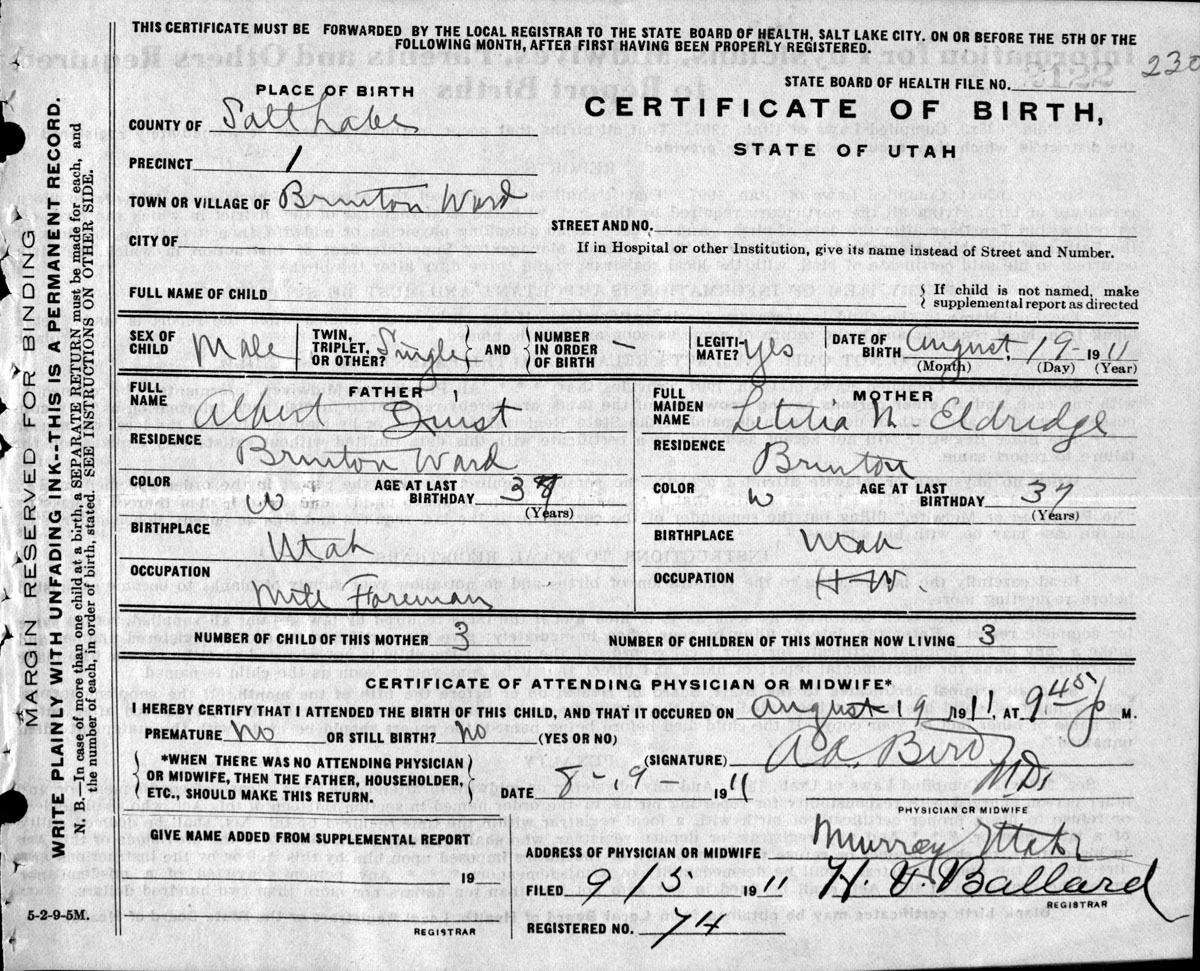 THIS CERTIFICATE MUST BE FORWARDED BY THE LOCAL REGISTRAR TO THE STATE BOARD OF HEALTH, SALT LAKE CITY. ON OR BEFORE THE 5TH OF THE
FOLLOWING MONTH, AFTER FIRST HAVING BEEN PROPERLY REGISTERED.
230
STATE BOARD OF HEALTH FILE NO.
PLACE OF BIRTH
CERTIFICATE OF BIRTH,
STATE OF UTAH
COUNTY OF Salt Lake
PRECINCT 1
TOWN OR VILLAGE OF Brinton Ward
STREET AND NO.
CITY OF
If in Hospital or other Institution, give its name instead of Street and Number.
FULL NAME OF CHILD
If child is not named, make
supplemental report as directed
SEX OF CHILD Male
TWIN, TRIPLET, OR OTHER? Single AND NUMBER IN ORDER OF BIRTH –
LEGITI-MATE? Yes
DATE OF BIRTH August 19- 1911
(Month) (Day) (Year)
FATHER
FULL NAME Albert Quist
MOTHER
FULL MAIDEN NAME Letitia M. Eldridge
RESIDENCE Brinton Ward
RESIDENCE Brinton
COLOR W AGE AT LAST BIRTHDAY (Years)
COLOR W AGE AT LAST BIRTHDAY 37 (Years)
BIRTHPLACE Utah
BIRTHPLACE Utah
OCCUPATION Mill Foreman
OCCUPATION H-W
NUMBER OF CHILD OF THIS MOTHER 3
NUMBER OF CHILDREN OF THIS MOTHER NOW LIVING 3
CERTIFICATE OF ATTENDING PHYSICIAN OR MIDWIFE*
I HEREBY CERTIFY THAT I ATTENDED THE BIRTH OF THIS CHILD, AND THAT IT OCCURED ON August 19 1911 AT 9 45/p M.
PREMATURE No OR STILL BIRTH? No (YES OR NO)
(SIGNATURE) A.A. Bird
M.D.
PHYSICIAN OR MIDWIFE
*WHEN THERE WAS NO ATTENDING PHYSICIAN
OR MIDWIFE, THEN THE FATHER, HOUSEHOLDER,
ETC., SHOULD MAKE THIS RETURN.
DATE 8-9- 1911
GIVE NAME ADDED FROM SUPPLEMENTAL REPORT
19
REGISTRAR
ADDRESS OF PHYSICIAN OR MIDWIFE Murray Utah
FILED 9/3 1911 H V Ballard
REGISTRAR
REGISTERED NO. 74
5-2-9-5M.
MARGIN RESERVED FOR BINDING
WRITE PLAINLY WITH UNFADING INK--THIS IS A PERMANENT RECORD.
N. B.—In case of more than one child at a birth, a SEPARATE RETURN must be made for each, and
the number of each, in order of birth, stated. SEE INSTRUCTIONS ON OTHER SIDE.